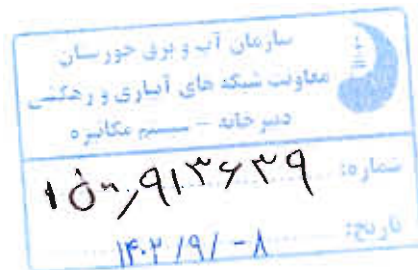 سازمان آب و برق خوزستان
معاونت شبکه های آبیاری و زهکشی
دبیرخانه – سیستم مکانیزه
شماره: ۱۵۰۰/۹۱۳۶۳۹
تاریخ: ۱۴۰۲/۹/-۸